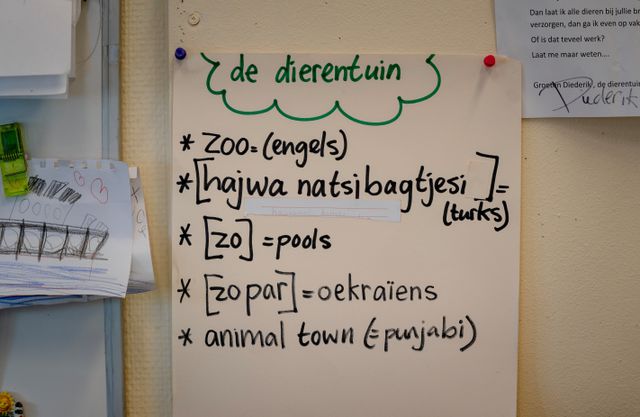 de dierentuin
* ZOO=(engels)
*[hajwa natsibagtjesi]=
(turks)
* [zo] =pools
* [zopar]=oekraïens
* animal town (=punjabi)
Dan laat ik alle dieren bij jullie br
verzorgen, dan ga ik even op vak
Of is dat teveel werk?
Laat me maar weten....
Groeten Diederik, de dierentui
Diederik